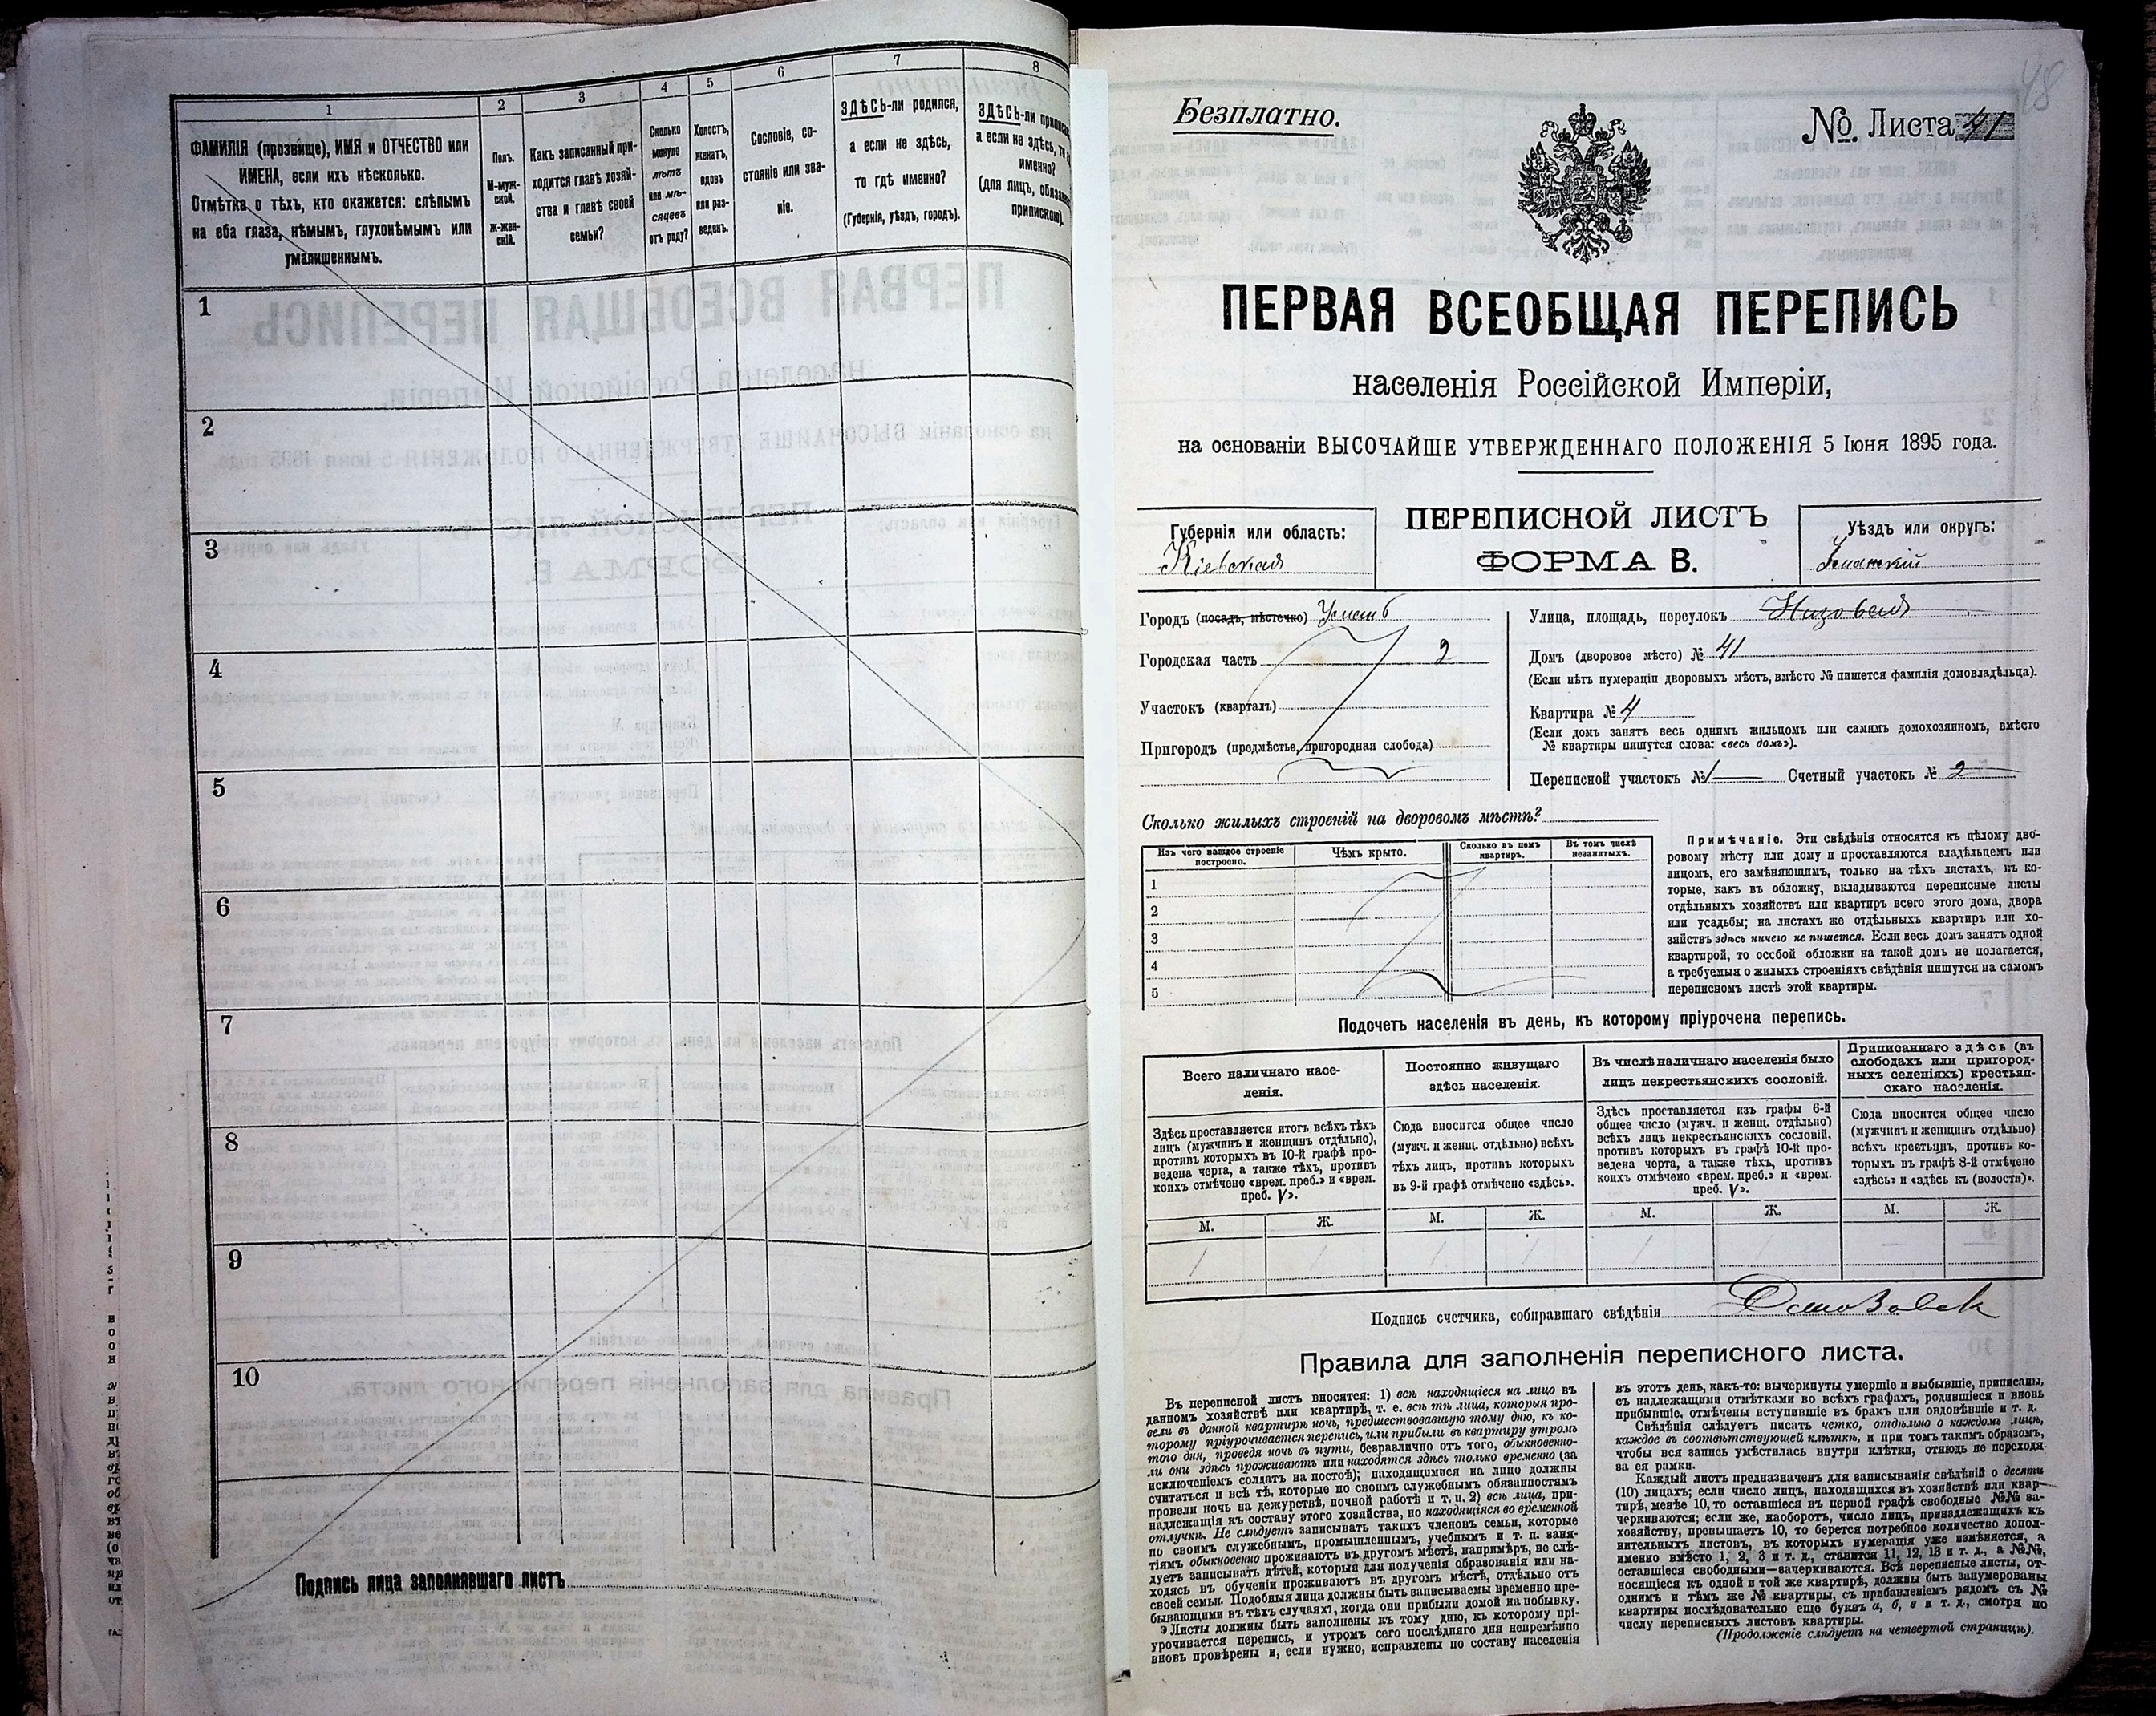 1
2
3
4
5
6
7
8
ФАМИЛІЯ (прозвище), ИМЯ и ОТЧЕСТВО или
ИМЕНА, если ихъ нѣсколько.
Отмѣтка о тѣхъ, кто окажется: слѣпымъ
на оба глаза, нѣмымъ, глухонѣмымъ или
умалишеннымъ.
Полъ.
М-муж-
ской.
ж-жен-
скій.
Какъ записанный при-
ходится главѣ хозяй-
ства и главѣ своей
семьи?
Сколько
минуло
лѣтъ
или мѣ-
сяцевъ
отъ роду?
Холостъ,
женатъ,
вдовъ
или раз-
веденъ.
Сословіе, со-
стояніе или зва-
ніе.
ЗДѢСЬ-ли родился,
а если не здѣсь,
то гдѣ именно?
(Губернія, уѣздъ, городъ).
ЗДѢСЬ-ли
а если не здѣсь,
именно?
(для лицъ,
припискою).
1
2
3
4
5
6
7
8
9
10
Подпись лица заполнявшаго листъ
48
Безплатно.
№ Листа 41
ПЕРВАЯ ВСЕОБЩАЯ ПЕРЕПИСЬ
населенія Россійской Имперіи,
на основаніи ВЫСОЧАЙШЕ УТВЕРЖДЕННАГО ПОЛОЖЕНІЯ 5 Іюня 1895 года.
Губернія или область:
Кіевская
ПЕРЕПИСНОЙ ЛИСТЪ
ФОРМА В.
Уѣздъ или округъ:
Уманскій
Городъ (посадъ, мѣстечко) Умань
Городская часть 2
Участокъ (кварталъ)
Пригородъ (предмѣстье, пригородная слобода)
Улица, площадь, переулокъ Низовая
Домъ (дворовое мѣсто) № 41
(Если нѣтъ нумераціи дворовыхъ мѣстъ, вмѣсто № пишется фамилія домовладѣльца).
Квартира № 4
(Если домъ занятъ весь однимъ жильцомъ или самимъ домохозяиномъ, вмѣсто
№ квартиры пишутся слова: «весь домъ»).
Переписной участокъ № 1 Счетный участокъ № 2
Сколько жилыхъ строеній на дворовомъ мѣстѣ?
Изъ чего каждое строеніе
построено.
Чѣмъ крыто.
Сколько въ немъ
квартиръ.
Въ томъ числѣ
незанятыхъ.
1
2
3
4
5
Примѣчаніе. Эти свѣдѣнія относятся къ цѣлому дво-
ровому мѣсту или дому и проставляются владѣльцемъ или
лицомъ, его замѣняющимъ, только на тѣхъ листахъ, въ ко-
торые, какъ въ обложку, вкладываются переписные листы
отдѣльныхъ хозяйствъ или квартиръ всего этого дома, двора
или усадьбы; на листахъ же отдѣльныхъ квартиръ или хо-
зяйствъ здѣсь ничего не пишется. Если весь домъ занятъ одной
квартирой, то особой обложки на такой домъ не полагается,
а требуемыя о жилыхъ строеніяхъ свѣдѣнія пишутся на самомъ
переписномъ листѣ этой квартиры.
Подсчетъ населенія въ день, къ которому пріурочена перепись.
Всего наличнаго насе-
ленія.
Здѣсь проставляется итогъ всѣхъ тѣхъ
лицъ (мужчинъ и женщинъ отдѣльно),
противъ которыхъ въ 10-й графѣ про-
ведена черта, а также тѣхъ, противъ
коихъ отмѣчено «врем. преб.» и «врем.
преб. V».
Постоянно живущаго
здѣсь населенія.
Сюда вносится общее число
(мужч. и женщ. отдѣльно) всѣхъ
тѣхъ лицъ, противъ которыхъ
въ 9-й графѣ отмѣчено «здѣсь».
Въ числѣ наличнаго населенія было
лицъ некрестьянскихъ сословій.
Здѣсь проставляется изъ графы 6-й
общее число (мужч. и женщ. отдѣльно)
всѣхъ лицъ некрестьянскихъ сословій,
противъ которыхъ въ графѣ 10-й про-
ведена черта, а также тѣхъ, противъ
коихъ отмѣчено «врем. преб.» и «врем.
преб. V».
Приписаннаго здѣсь (въ
слободахъ или пригород-
ныхъ селеніяхъ) крестьян-
скаго населенія.
Сюда вносится общее число
(мужчинъ и женщинъ отдѣльно)
всѣхъ крестьянъ, противъ ко-
торыхъ въ графѣ 8-й отмѣчено
«здѣсь» и «здѣсь къ (волости)».
М. Ж. М. Ж. М. Ж. М. Ж.
1 1 1 1 1 1 — —
Подпись счетчика, собиравшаго свѣдѣнія
Правила для заполненія переписного листа.
Въ переписной листъ вносятся: 1) всѣ находящіеся на лицо въ
данномъ хозяйствѣ или квартирѣ, т. е. всѣ тѣ лица, которыя про-
вели въ данной квартирѣ ночь, предшествовавшую тому дню, къ ко-
торому пріурочивается перепись, или прибыли въ квартиру утромъ
того дня, проведя ночь въ пути, безразлично отъ того, обыкновенно-
ли они здѣсь проживаютъ или находятся здѣсь только временно (за
исключеніемъ солдатъ на постоѣ); находящимися на лицо должны
считаться и всѣ тѣ, которые по своимъ служебнымъ обязанностямъ
провели ночь на дежурствѣ, ночной работѣ и т. п. 2) всѣ лица, при-
надлежащія къ составу этого хозяйства, но находящіяся во временной
отлучкѣ. Не слѣдуетъ записывать такихъ членовъ семьи, которые
по своимъ служебнымъ, промышленнымъ, учебнымъ и т. п. заня-
тіямъ обыкновенно проживаютъ въ другомъ мѣстѣ, напримѣръ, не слѣ-
дуетъ записывать дѣтей, которыя для полученія образованія или на-
ходясь въ обученіи проживаютъ въ другомъ мѣстѣ, отдѣльно отъ
своей семьи. Подобныя лица должны быть записываемы временно пре-
бывающими въ тѣхъ случаяхъ, когда они прибыли домой на побывку.
Листы должны быть заполнены къ тому дню, къ которому прі-
урочивается перепись, и утромъ сего послѣдняго дня непремѣнно
вновь провѣрены и, если нужно, исправлены по составу населенія
въ этотъ день, какъ-то: вычеркнуты умершіе и выбывшіе, приписаны,
съ надлежащими отмѣтками во всѣхъ графахъ, родившіеся и вновь
прибывшіе, отмѣчены вступившіе въ бракъ или овдовѣвшіе и т. д.
Свѣдѣнія слѣдуетъ писать четко, отдѣльно о каждомъ лицѣ,
каждое въ соотвѣтствующей клѣткѣ, и при томъ такимъ образомъ,
чтобы вся запись умѣстилась внутри клѣтки, отнюдь не переходя
за ея рамки.
Каждый листъ предназначенъ для записыванія свѣдѣній о десяти
(10) лицахъ; если число лицъ, находящихся въ хозяйствѣ или квар-
тирѣ, менѣе 10, то оставшіеся въ первой графѣ свободные №№ за-
черкиваются; если же, наоборотъ, число лицъ, принадлежащихъ къ
хозяйству, превышаетъ 10, то берется потребное количество допол-
нительныхъ листовъ, въ которыхъ нумерація уже измѣняется, а
именно вмѣсто 1, 2, 3 и т. д., ставится 11, 12, 13 и т. д., а №№,
оставшіеся свободными—зачеркиваются. Всѣ переписные листы, от-
носящіеся къ одной и той же квартирѣ, должны быть занумерованы
однимъ и тѣмъ же № квартиры, съ прибавленіемъ рядомъ съ №
квартиры послѣдовательно еще буквъ а, б, в и т. д., смотря по
числу переписныхъ листовъ квартиры.
(Продолженіе слѣдуетъ на четвертой страницѣ).